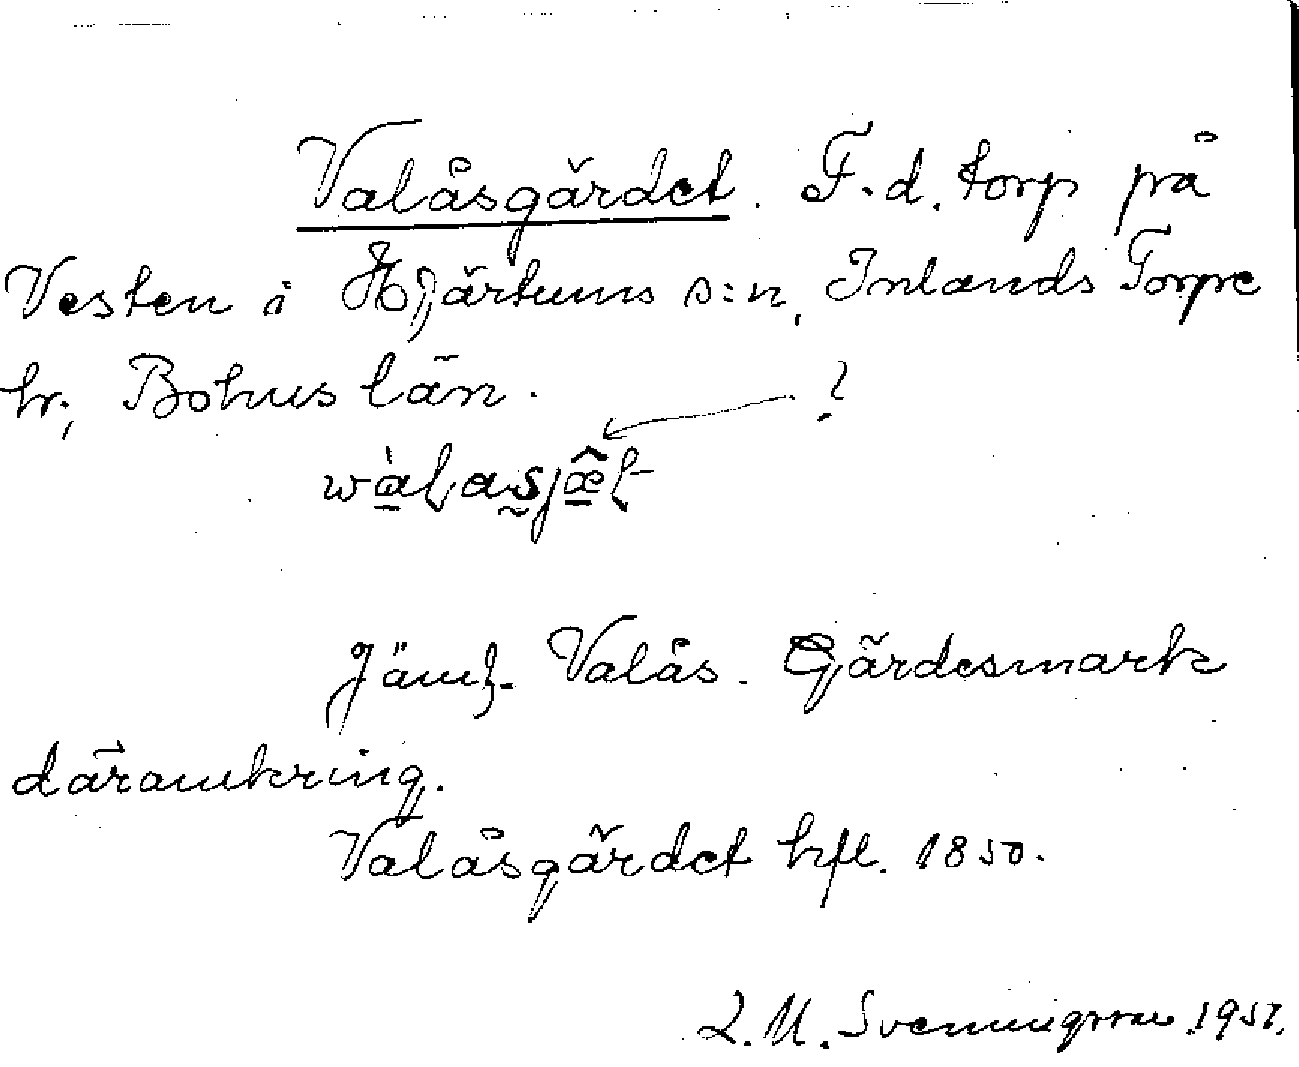 Valåsgärdet. F.d. torp på
Vesten i Hjärtums s:n, Inlands Torpe
hr, Bohus län.
?
Jämf. Valås. Gärdesmark
däromkring.
Valåsgärdet hfl. 1850.
L.M. Svenningsson 1957.